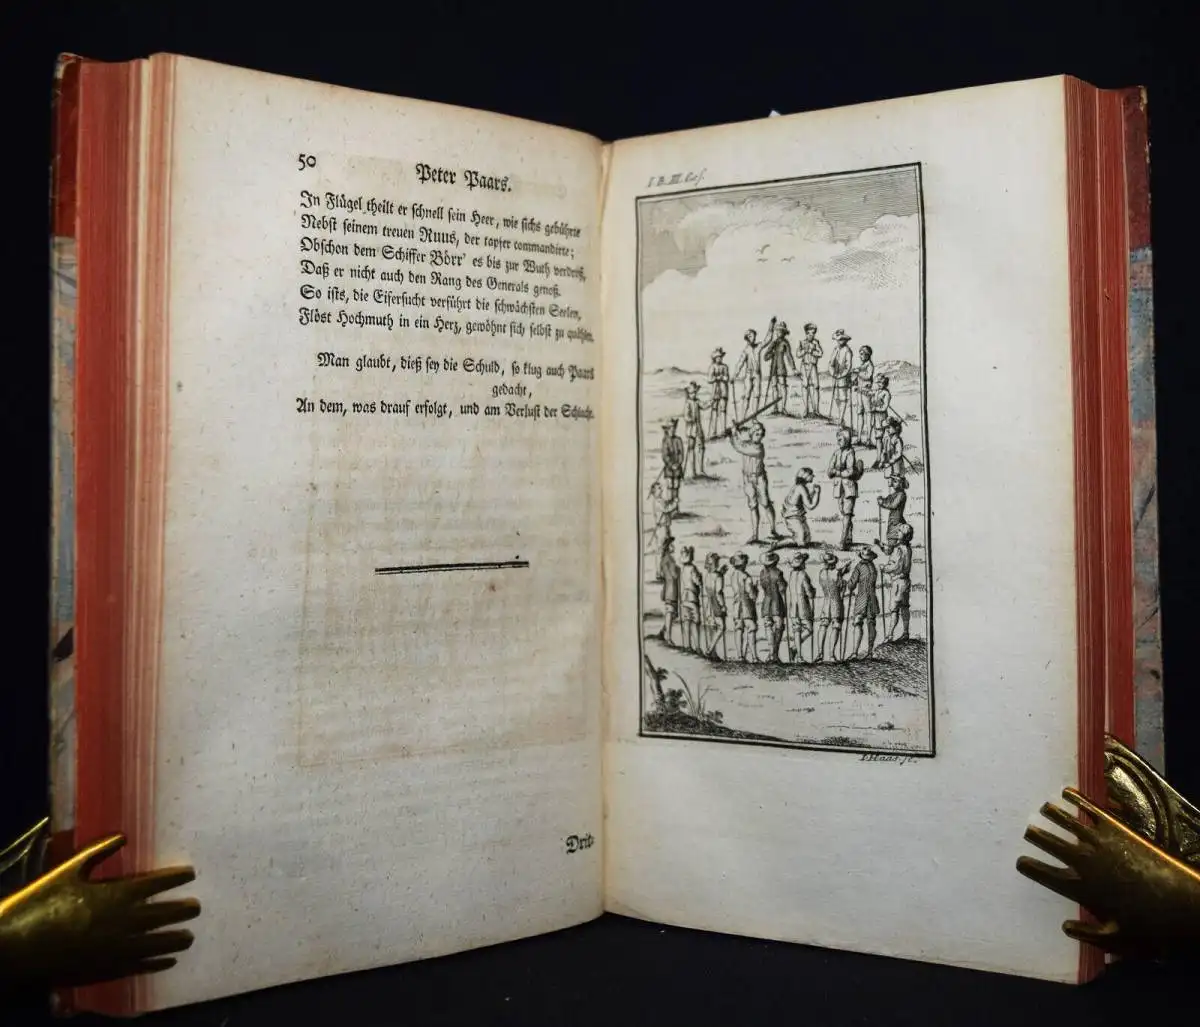 50
Peter Paars.
In Flügel theilt er schnell sein Heer, wie sichs gebührte
Nebst seinem treuen Ruus, der tapfer commandirte;
Obschon dem Schiffer Börr' es bis zur Wuth verdroß,
Daß er nicht auch den Rang des Generals genoß.
So ists, die Eifersucht verführt die schwächsten Seelen,
Flöst Hochmuth in ein Herz, gewöhnt sich selbst zu quählen.
Man glaubt, dieß sey die Schuld, so klug auch Paars
gedacht,
An dem, was drauf erfolgt, und am Verlust der Schlacht.
Drit-
I. B. III. Ges.
I. Haas. sc.